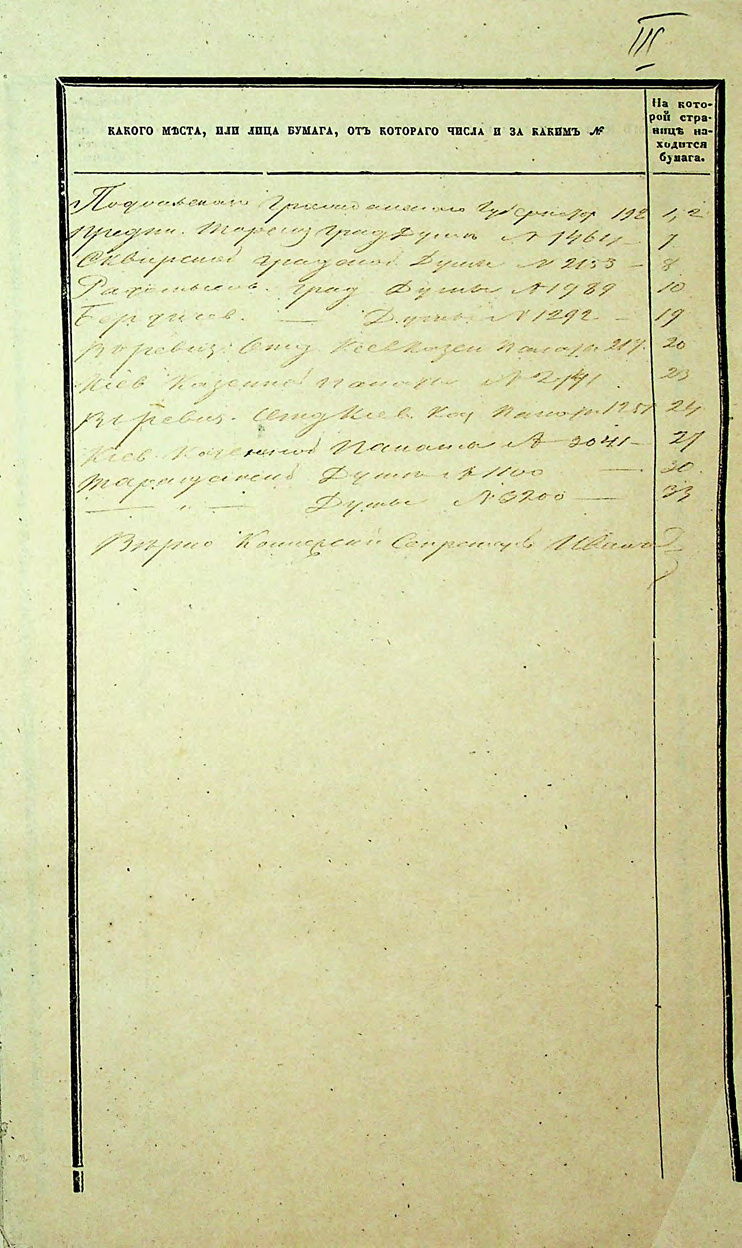 III
КАКОГО МѢСТА, ИЛИ ЛИЦА БУМАГА, ОТЪ КОТОРАГО ЧИСЛА И ЗА КАКИМЪ №
На кото-
рой стра-
ницѣ на-
ходится
бумага.
Подольскаго Гражданскаго Губернатор 192 1, 2
град Думы № 1461 — 7
Сквирской градской Думы № 2153 — 8
Радомысль. град Думы № 1989 10
Бердичев. — Думы № 1292 — 19
Въ ревиз. Отд Кіев Казен Палаты 217. 20
Кіев Казенной Палаты № 2791 23
Въ ревиз. Отд Кіев. Каз Палаты 1251 24
Кіев. Казенной Палаты № 3041 — 27
Таращанской Думы № 1100 — 30
— „ — Думы № 3200 — 33
Вѣрно Коллежскій Секретарь